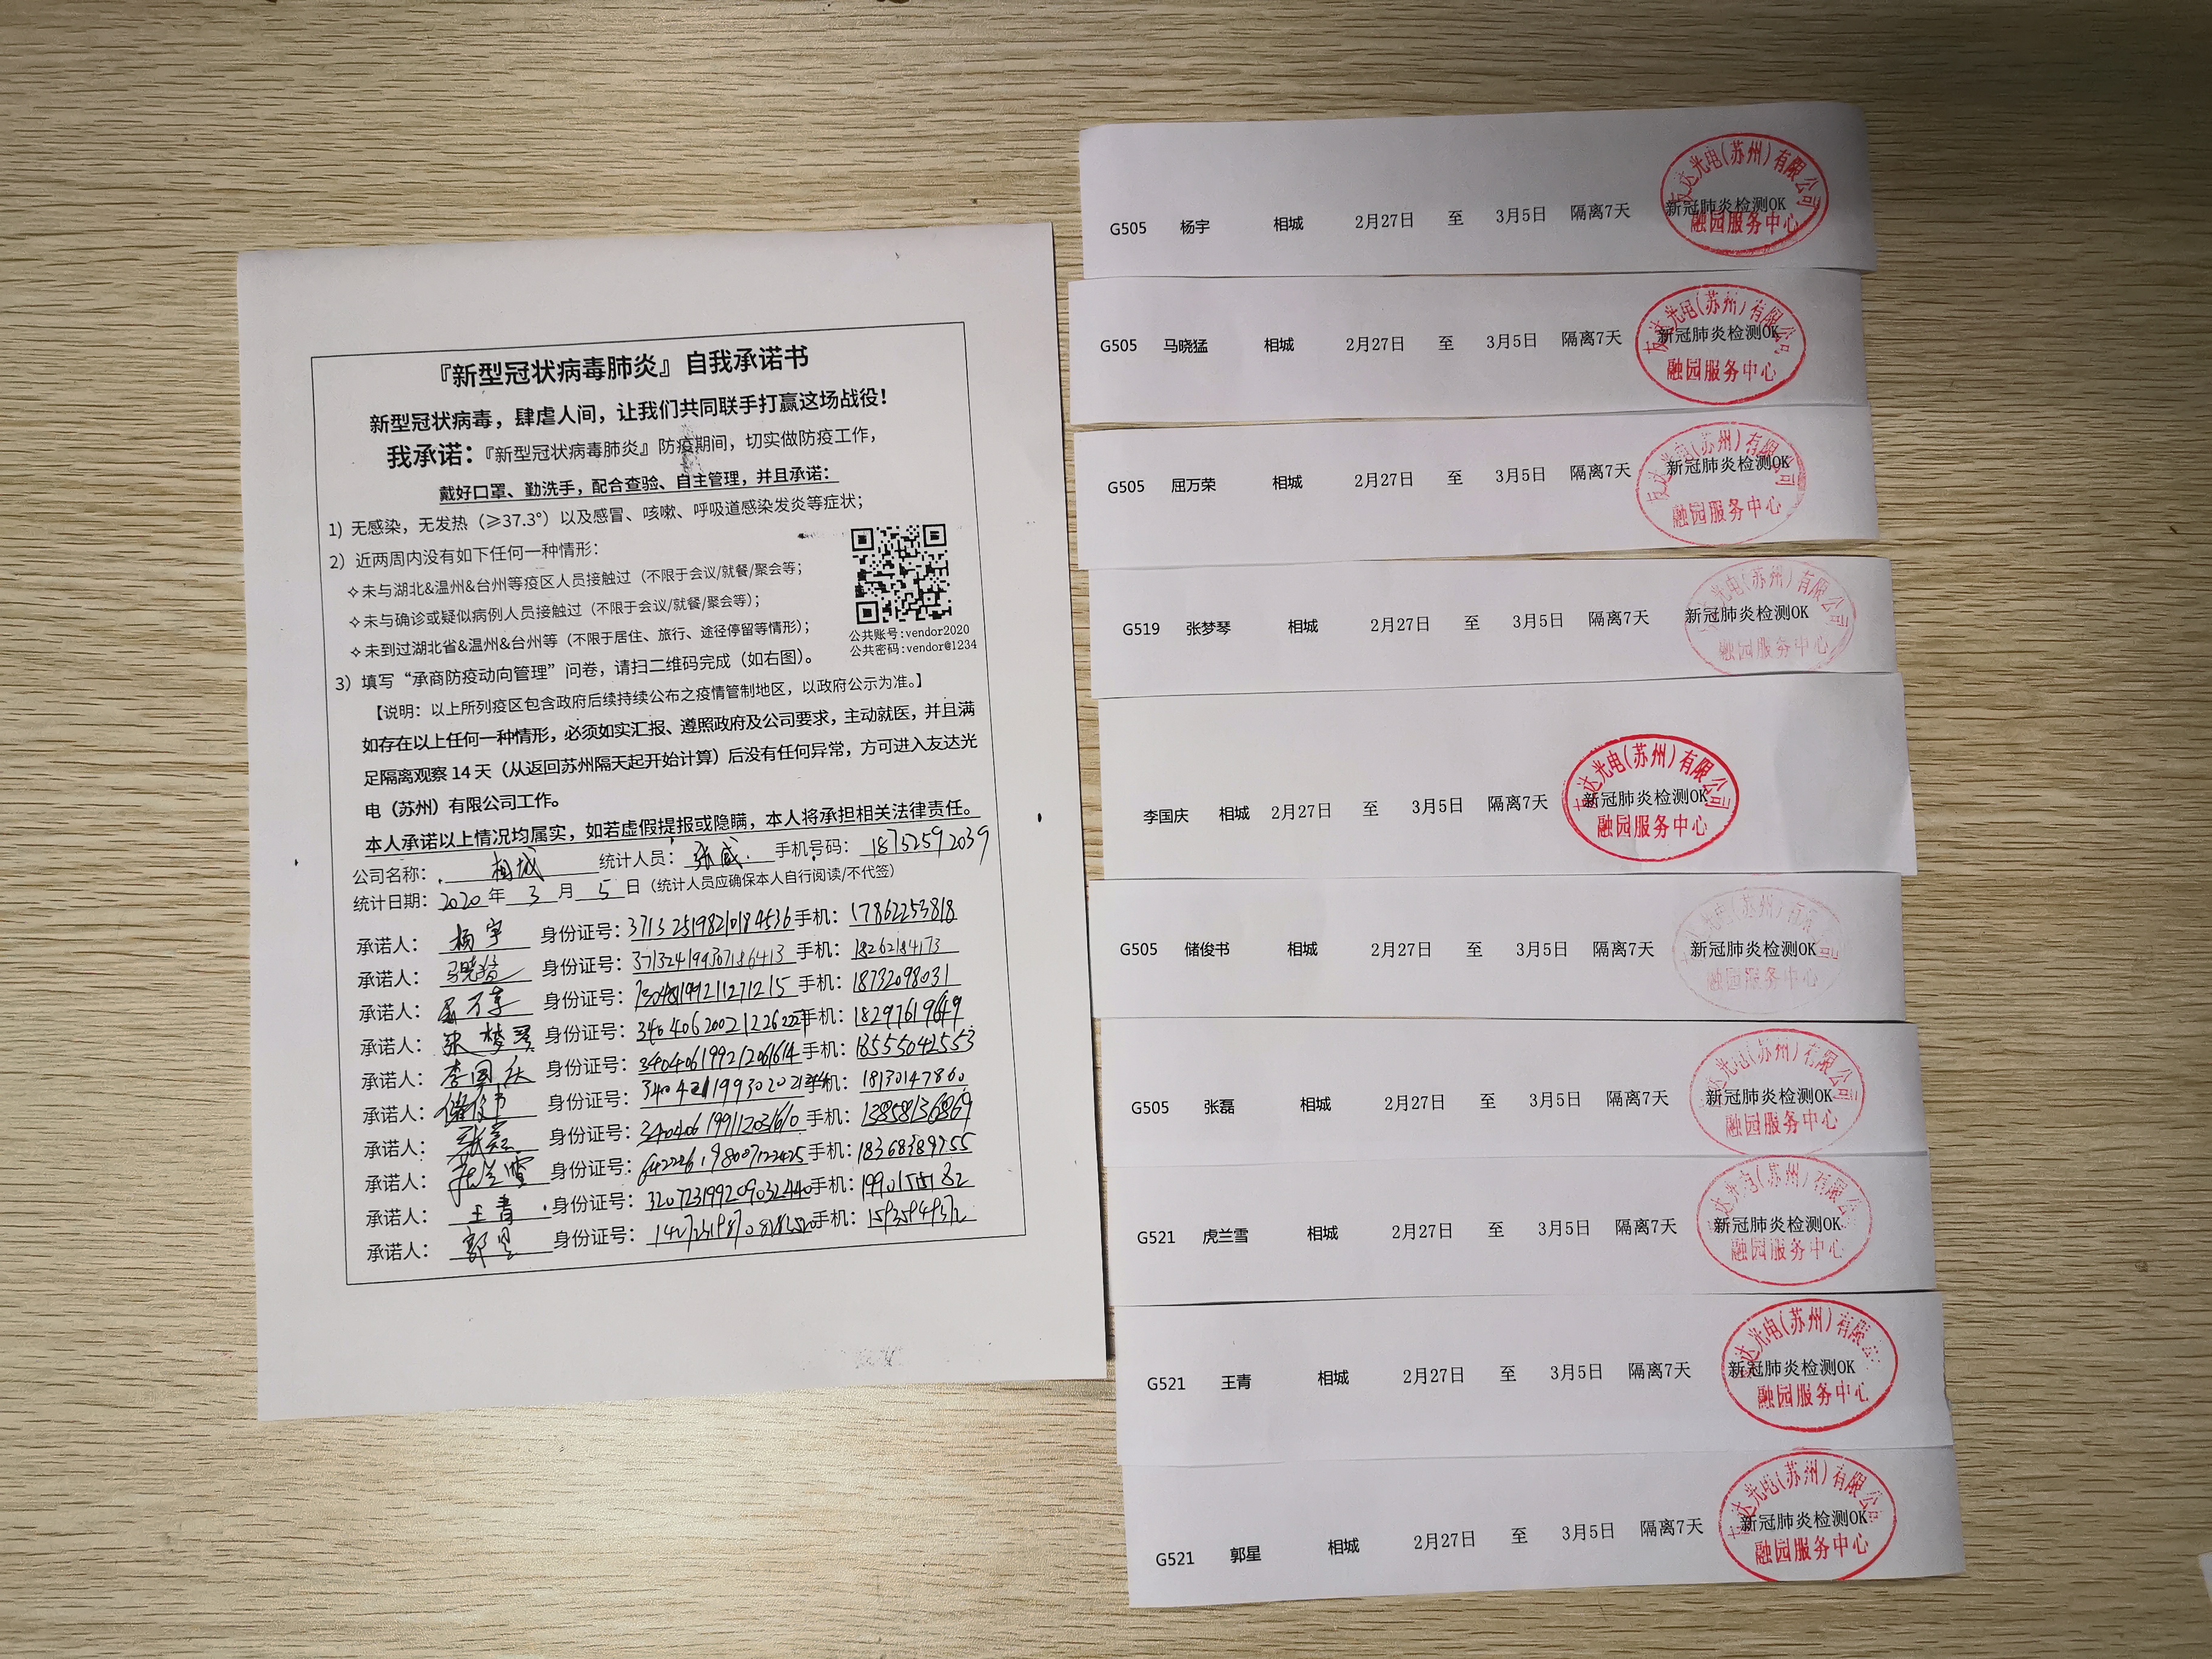 『新型冠状病毒肺炎』自我承诺书
新型冠状病毒，肆虐人间，让我们共同联手打赢这场战役！
我承诺：『新型冠状病毒肺炎』防疫期间，切实做防疫工作，
戴好口罩、勤洗手，配合查验、自主管理，并且承诺：
1）无感染，无发热（≥37.3°）以及感冒、咳嗽、呼吸道感染发炎等症状；
2）近两周内没有如下任何一种情形：
✧未与湖北&温州&台州等疫区人员接触过（不限于会议/就餐/聚会等；
✧未与确诊或疑似病例人员接触过（不限于会议/就餐/聚会等）；
✧未到过湖北省&温州&台州等（不限于居住、旅行、途径停留等情形）；
公共账号:vendor2020
公共密码:vendor@1234
3）填写“承商防疫动向管理”问卷，请扫二维码完成（如右图）。
【说明：以上所列疫区包含政府后续持续公布之疫情管制地区，以政府公示为准。】
如存在以上任何一种情形，必须如实汇报、遵照政府及公司要求，主动就医，并且满
足隔离观察14天（从返回苏州隔天起开始计算）后没有任何异常，方可进入友达光
电（苏州）有限公司工作。
本人承诺以上情况均属实，如若虚假提报或隐瞒，本人将承担相关法律责任。
公司名称： 相城 统计人员： 张威 手机号码： 18752592039
统计日期：2020年 3 月 5 日（统计人员应确保本人自行阅读/不代签）
承诺人： 杨宇 身份证号：371325198210184536 手机：17862253818
承诺人： 马晓猛 身份证号：371324199307186413 手机：18262184173
承诺人： 屈万荣 身份证号： 手机：18732098031
承诺人： 张梦琴 身份证号： 手机：18297619649
承诺人： 李国庆 身份证号：340406199212061614 手机：18555042553
承诺人： 储俊书 身份证号： 手机：18130147860
承诺人： 张磊 身份证号：340406199112031610 手机：13858136869
承诺人： 虎兰雪 身份证号： 手机：18368389755
承诺人： 王青 身份证号：320723199209032440 手机：
承诺人： 郭星 身份证号： 手机：
G505 杨宇 相城 2月27日 至 3月5日 隔离7天 新冠肺炎检测OK
友达光电(苏州)有限公司
融园服务中心
G505 马晓猛 相城 2月27日 至 3月5日 隔离7天 新冠肺炎检测OK
友达光电(苏州)有限公司
融园服务中心
G505 屈万荣 相城 2月27日 至 3月5日 隔离7天 新冠肺炎检测OK
友达光电(苏州)有限公司
融园服务中心
G519 张梦琴 相城 2月27日 至 3月5日 隔离7天 新冠肺炎检测OK
友达光电(苏州)有限公司
融园服务中心
李国庆 相城 2月27日 至 3月5日 隔离7天 新冠肺炎检测OK
友达光电(苏州)有限公司
融园服务中心
G505 储俊书 相城 2月27日 至 3月5日 隔离7天 新冠肺炎检测OK
友达光电(苏州)有限公司
融园服务中心
G505 张磊 相城 2月27日 至 3月5日 隔离7天 新冠肺炎检测OK
友达光电(苏州)有限公司
融园服务中心
G521 虎兰雪 相城 2月27日 至 3月5日 隔离7天 新冠肺炎检测OK
友达光电(苏州)有限公司
融园服务中心
G521 王青 相城 2月27日 至 3月5日 隔离7天 新冠肺炎检测OK
友达光电(苏州)有限公司
融园服务中心
G521 郭星 相城 2月27日 至 3月5日 隔离7天 新冠肺炎检测OK
友达光电(苏州)有限公司
融园服务中心